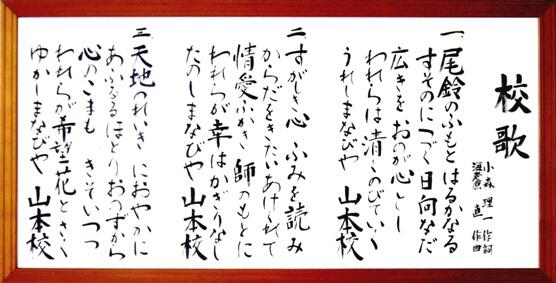 校歌
小森理一 作詞
直一 作曲
一、尾鈴のふもと はるかなる
すそのにつづく 日向なだ
広きをおのが心とし
われらは清くのびていく
うれしまなびや 山本校
二 すがしき心 ふみを読み
からだをきたいあけくれて
情愛ふかき 師のもとに
われらが幸はかぎりなし
たのしまなびや 山本校
三 天地のれいき におやかに
あふるるほとりおのずから
心のこまも きそいつつ
われらが希望花とさく
ゆかしまなびや 山本校